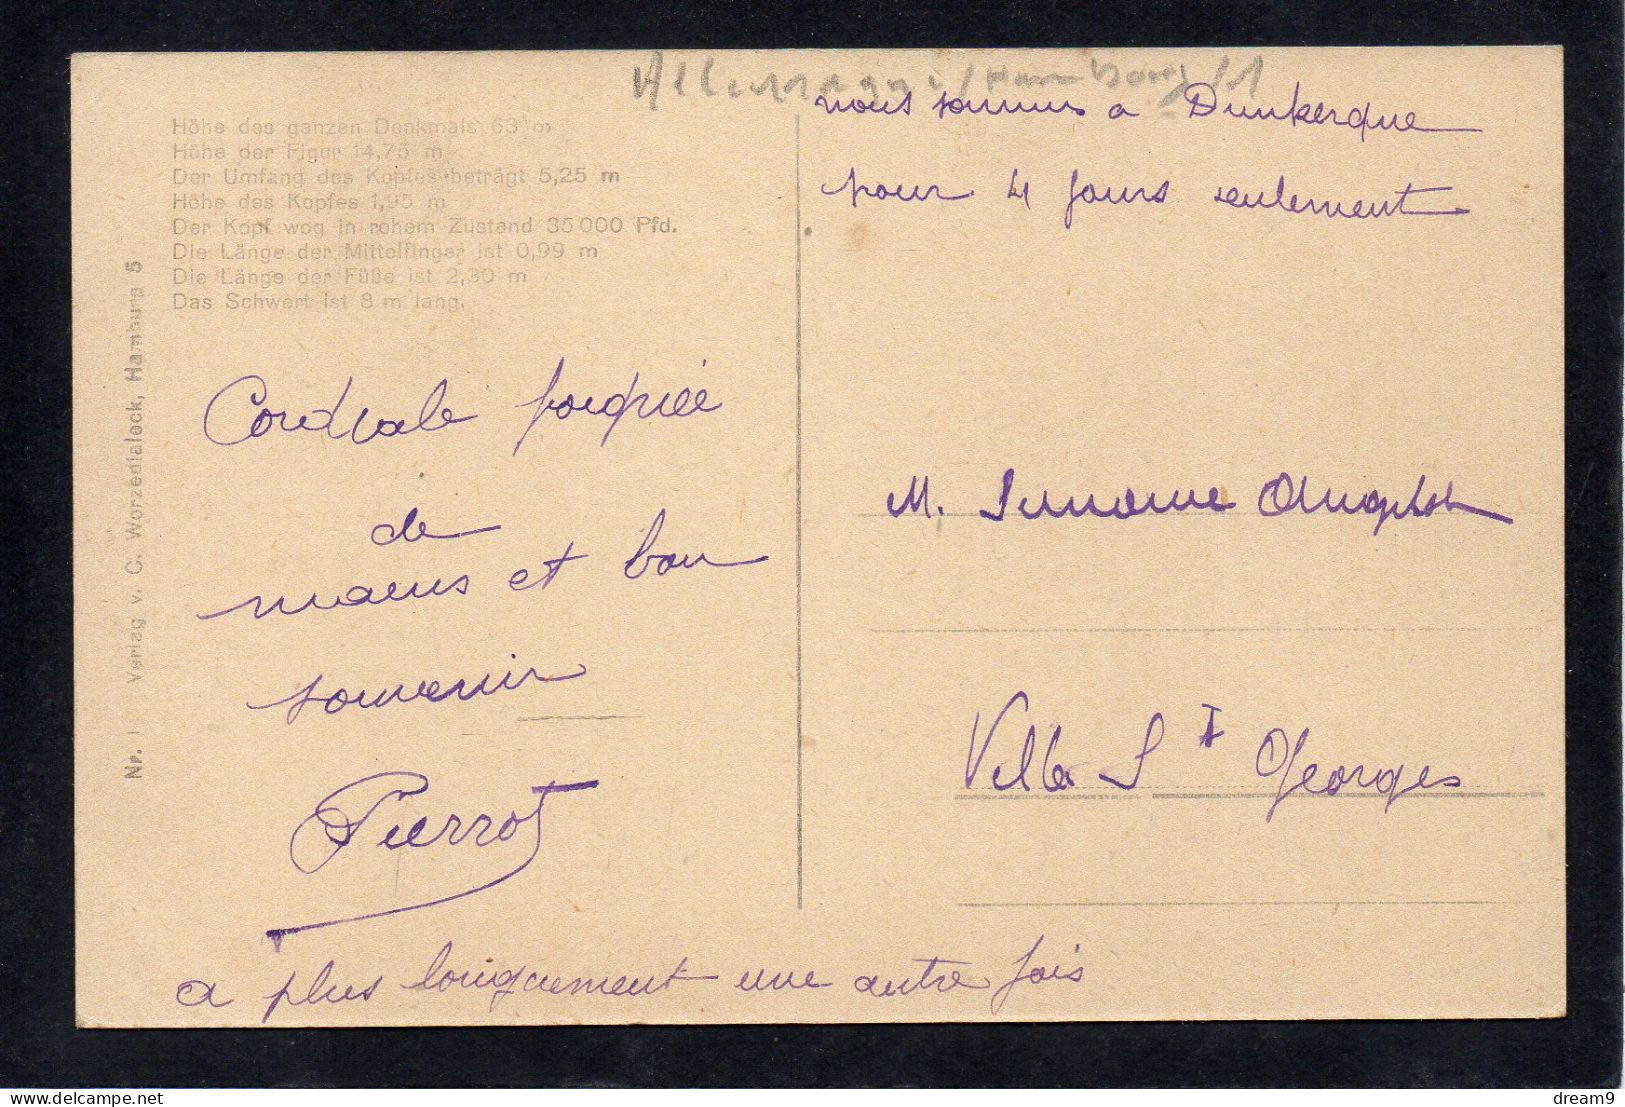 Allemagne / Hambourg / 1
nous sommes a Dunkerque
pour 4 jours seulement
Höhe des ganzen Denkmals 63 m
Höhe der Figur 14,75 m
Der Umfang des Kopfes beträgt 5,25 m
Höhe des Kopfes 1,95 m
Der Kopf wog in rohem Zustand 35 000 Pfd.
Die Länge der Mittelfinger ist 0,99 m
Die Länge der Füße ist 2,30 m
Das Schwert ist 8 m lang.
Nr. 1 Verlag v. C. Worzedialeck, Hamburg 5
Cordiale poignée
de
mains et bon
souvenir
Pierrot
a plus longuement une autre fois
M.
Villa St Georges
delcampe.net
dream9